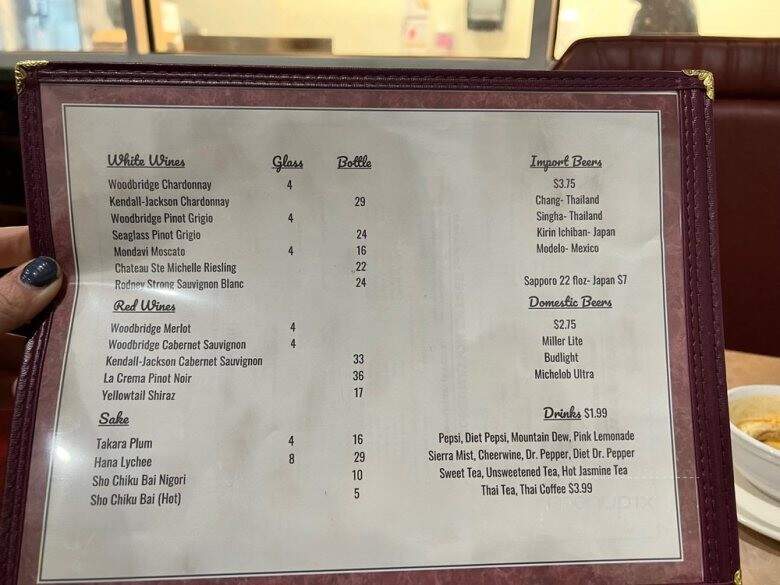 White Wines Glass Bottle
Woodbridge Chardonnay 4
Kendall-Jackson Chardonnay 29
Woodbridge Pinot Grigio 4
Seaglass Pinot Grigio 24
Mondavi Moscato 4 16
Chateau Ste Michelle Riesling 22
Rodney Strong Sauvignon Blanc 24
Red Wines
Woodbridge Merlot 4
Woodbridge Cabernet Sauvignon 4
Kendall-Jackson Cabernet Sauvignon 33
La Crema Pinot Noir 36
Yellowtail Shiraz 17
Sake
Takara Plum 4 16
Hana Lychee 8 29
Sho Chiku Bai Nigori 10
Sho Chiku Bai (Hot) 5
Import Beers
$3.75
Chang- Thailand
Singha- Thailand
Kirin Ichiban- Japan
Modelo- Mexico
Sapporo 22 floz- Japan $7
Domestic Beers
$2.75
Miller Lite
Budlight
Michelob Ultra
Drinks $1.99
Pepsi, Diet Pepsi, Mountain Dew, Pink Lemonade
Sierra Mist, Cheerwine, Dr. Pepper, Diet Dr. Pepper
Sweet Tea, Unsweetened Tea, Hot Jasmine Tea
Thai Tea, Thai Coffee $3.99